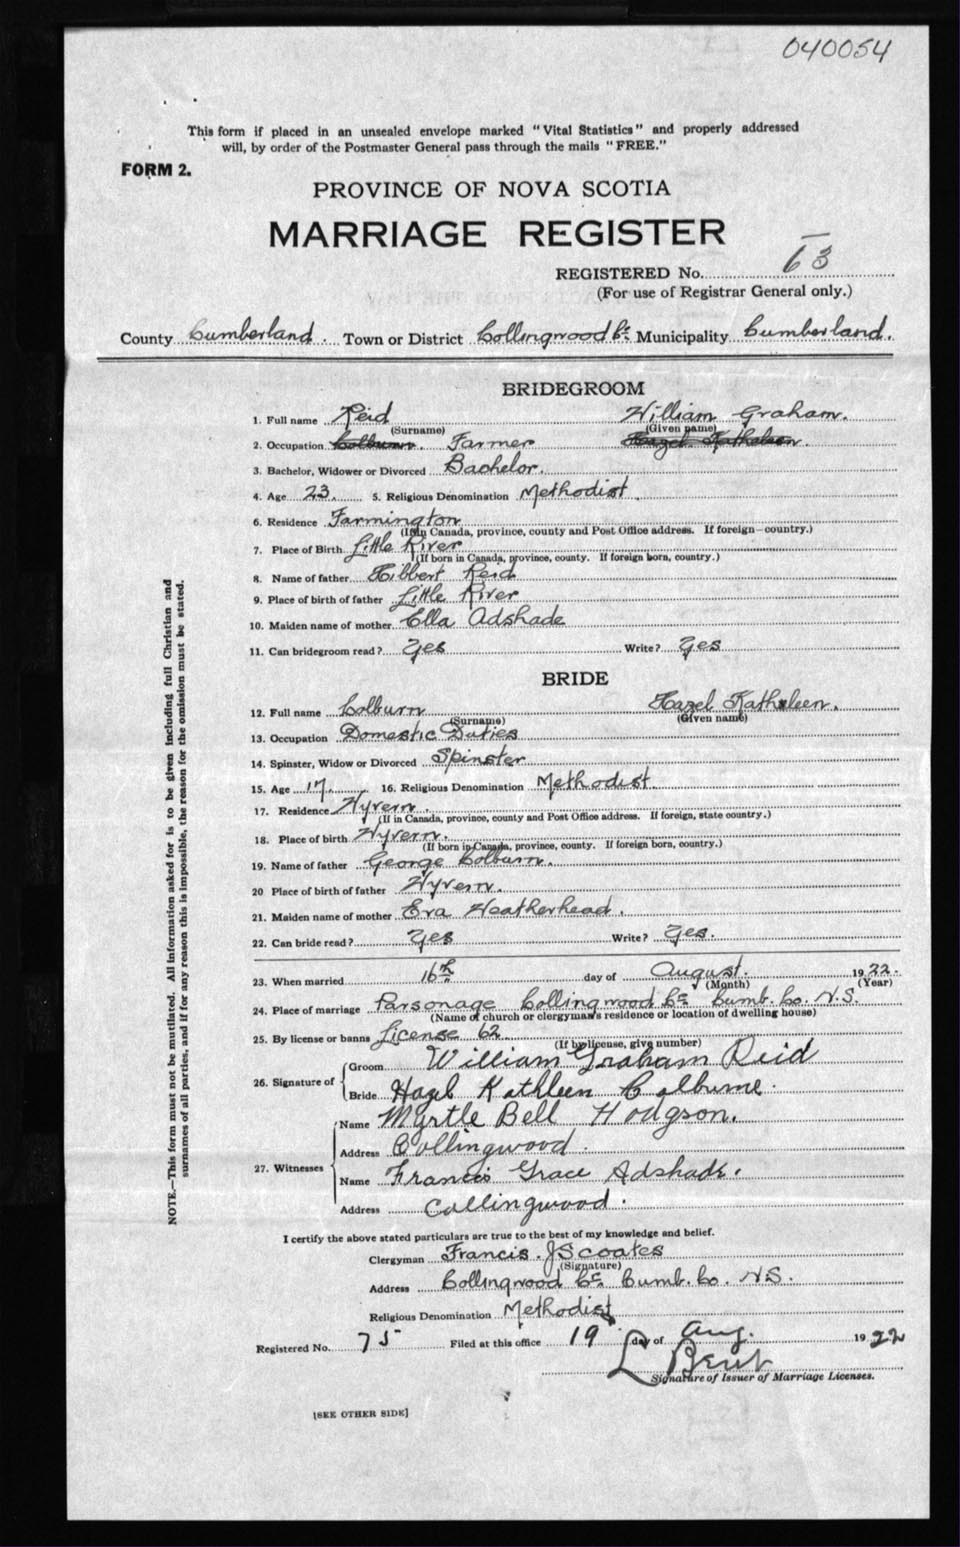 040054
This form if placed in an unsealed envelope marked "Vital Statistics" and properly addressed
will, by order of the Postmaster General pass through the mails "FREE."
FORM 2.
PROVINCE OF NOVA SCOTIA
MARRIAGE REGISTER
REGISTERED No. 63
(For use of Registrar General only.)
County Cumberland. Town or District Collingwood Cr. Municipality Cumberland.
BRIDEGROOM
1. Full name Reid William Graham.
(Surname) (Given name)
2. Occupation Colburn. Farmer Hazel Kathaleen
3. Bachelor, Widower or Divorced Bachelor.
4. Age 23. 5. Religious Denomination Methodist.
6. Residence Farmington
(If in Canada, province, county and Post Office address. If foreign country.)
7. Place of Birth Little River
(If born in Canada, province, county. If foreign born, country.)
8. Name of father Hibbert Reid
9. Place of birth of father Little River
10. Maiden name of mother Ella Adshade
11. Can bridegroom read? Yes Write? Yes
BRIDE
12. Full name Colburn Hazel Kathaleen.
(Surname) (Given name)
13. Occupation Domestic Duties
14. Spinster, Widow or Divorced Spinster
15. Age 17. 16. Religious Denomination Methodist.
17. Residence Wyvern.
(If in Canada, province, county and Post Office address. If foreign, state country.)
18. Place of birth Wyvern.
(If born in Canada, province, county. If foreign born, country.)
19. Name of father George Colburn.
20 Place of birth of father Wyvern.
21. Maiden name of mother Eva Heatherhead.
22. Can bride read? Yes Write? Yes.
23. When married 16th day of August. 1922.
(Month) (Year)
24. Place of marriage Parsonage Collingwood Cr. Cumb. Co. N.S.
(Name of church or clergyman's residence or location of dwelling house)
25. By license or banns License 62
(If by license, give number)
26. Signature of Groom William Graham Reid
Bride Hazel Kathleen Colburne.
27. Witnesses Name Myrtle Bell Hodgson.
Address Collingwood.
Name Francis Grace Adshade.
Address Collingwood.
I certify the above stated particulars are true to the best of my knowledge and belief.
Clergyman Francis. J Scoates
(Signature)
Address Collingwood Cr. Cumb. Co. N.S.
Religious Denomination Methodist
Registered No. 75 Filed at this office 19 day of Aug. 1922
L Bent
Signature of Issuer of Marriage Licenses.
[SEE OTHER SIDE]
NOTE.—This form must not be mutilated. All information asked for is to be given including full Christian and
surnames of all parties, and if for any reason this is impossible, the reason for the omission must be stated.